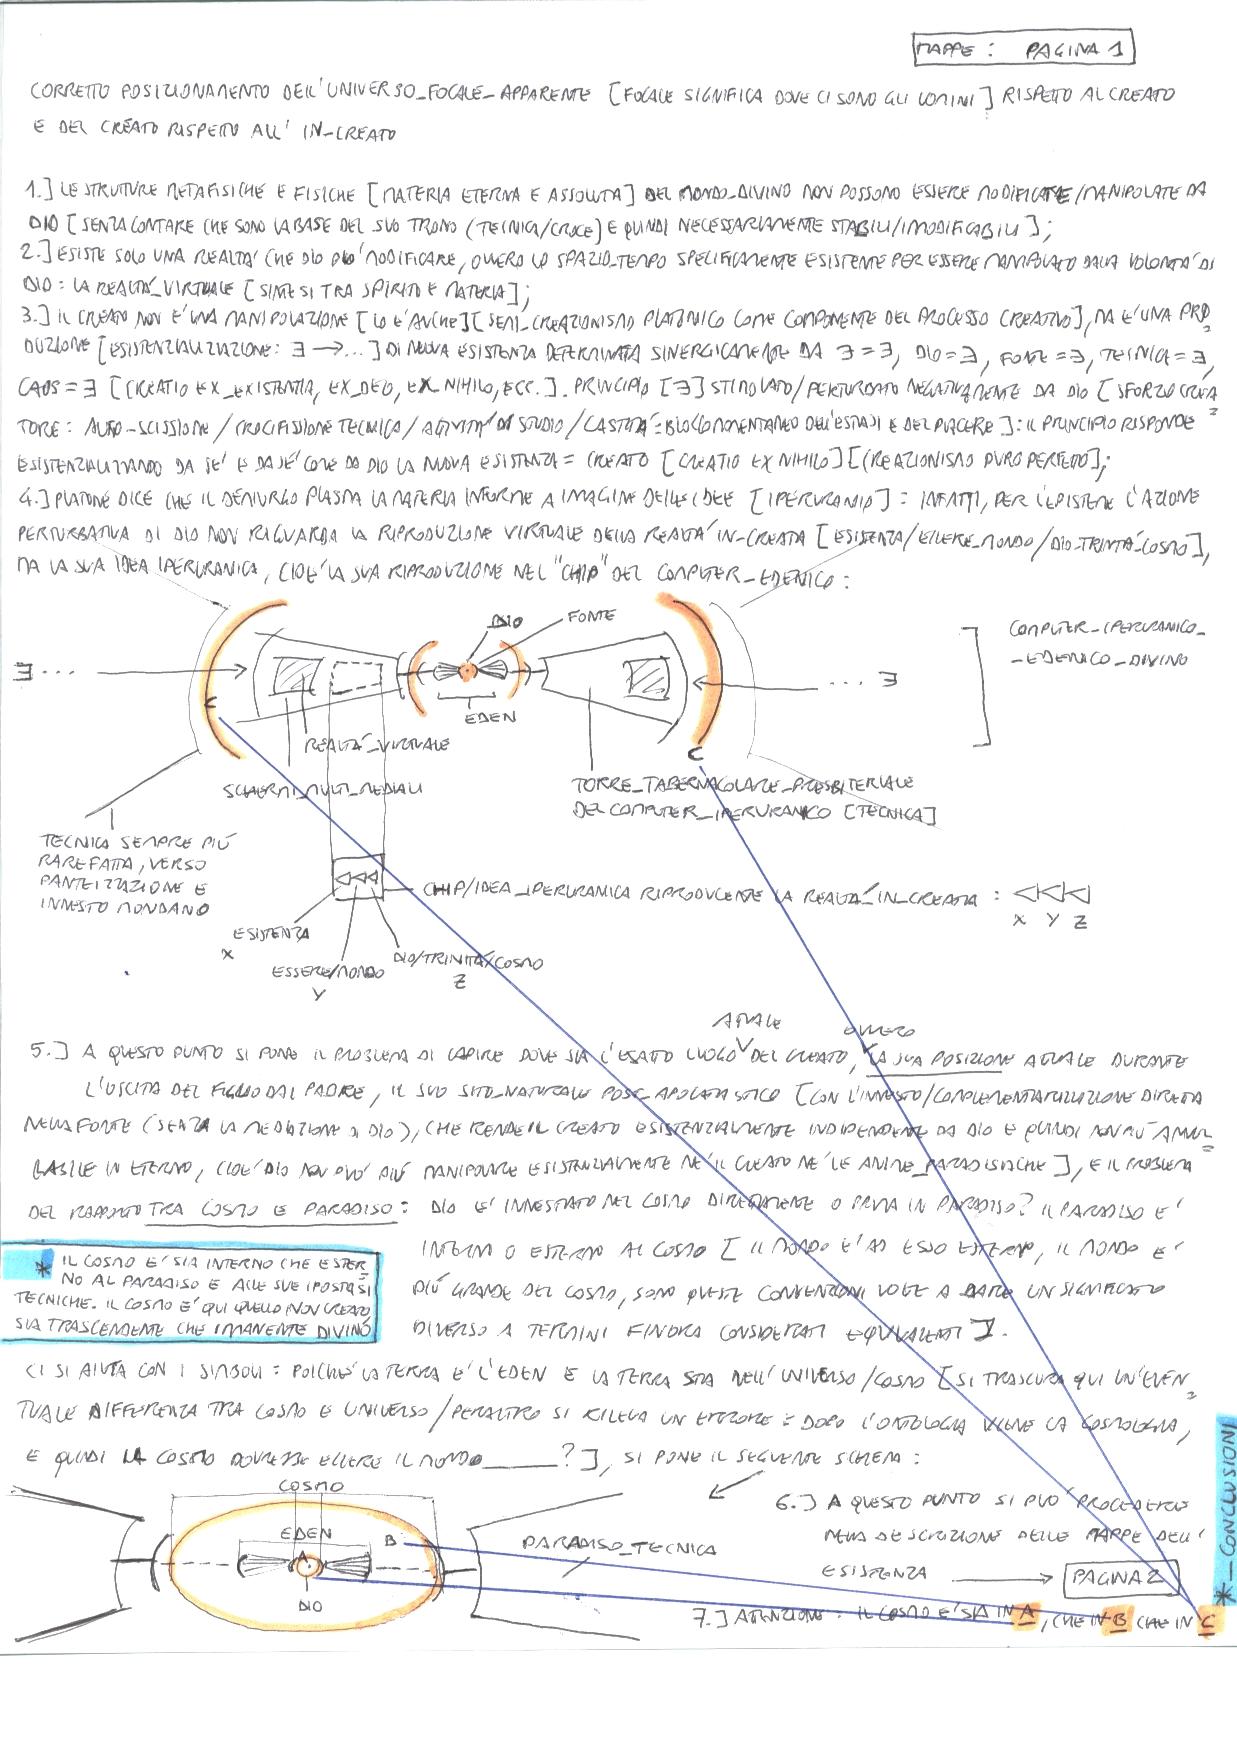 MAPPE : PAGINA 1
CORRETTO POSIZIONAMENTO DELL'UNIVERSO_FOCALE_APPARENTE [FOCALE SIGNIFICA DOVE CI SONO GLI UOMINI] RISPETTO AL CREATO
E DEL CREATO RISPETTO ALL' IN-CREATO
1.] LE STRUTTURE METAFISICHE E FISICHE [MATERIA ETERNA E ASSOLUTA] DEL MONDO_DIVINO NON POSSONO ESSERE MODIFICATE/MANIPOLATE DA
DIO [SENZA CONTARE CHE SONO LA BASE DEL SUO TRONO (TECNICA/CROCE) E QUINDI NECESSARIAMENTE STABILI/IMODIFICABILI];
2.] ESISTE SOLO UNA REALTA' CHE DIO PUO' MODIFICARE, OVVERO LO SPAZIO_TEMPO SPECIFICAMENTE ESISTENTE PER ESSERE MANIPOLATO DALLA VOLONTA' DI
DIO : LA REALTA'_VIRTUALE [SINTESI TRA SPIRITO E MATERIA];
3.] IL CREATO NON E' UNA MANIPOLAZIONE [LO E' ANCHE] [SEMI_CREAZIONISMO PLATONICO COME COMPONENTE DEL PROCESSO CREATIVO], MA E' UNA PRO
DUZIONE [ESISTENZIALIZZAZIONE: ∃ →...] DI NUOVA ESISTENZA DETERMINATA SINERGICAMENTE DA ∃=∃, DIO=∃, FONTE=∃, TECNICA=∃,
CAOS=∃ [CREATIO EX_EXISTENTIA, EX_DEO, EX_NIHILO, ECC.]. PRINCIPIO [∃] STIMOLATO/PERTURBATO NEGATIVAMENTE DA DIO [SFORZO CREA
TORE : AUTO-SCISSIONE/CROCIFISSIONE TECNICA/ATTIVITA' DI STUDIO/CASTITA'=BLOCCO MOMENTANEO DELL'ESTASI E DEL PIACERE] : IL PRINCIPIO RISPONDE
ESISTENZIALIZZANDO DA SE' E DA SE' COME DA DIO LA NUOVA ESISTENZA = CREATO [CREATIO EX NIHILO] [CREAZIONISMO PURO PERFETTO];
4.] PLATONE DICE CHE IL DEMIURGO PLASMA LA MATERIA INFORME A IMAGINE DELLE IDEE [IPERURANIO] : INFATTI, PER L'EPISTEME L'AZIONE
PERTURBATIVA DI DIO NON RIGUARDA LA RIPRODUZIONE VIRTUALE DELLA REALTA' IN-CREATA [ESISTENZA/ESSERE_MONDO/DIO_TRINITA'_COSMO],
MA LA SUA IDEA IPERURANICA, CIOE' LA SUA RIPRODUZIONE NEL "CHIP" DEL COMPUTER_EDENICO :
DIO
FONTE
COMPUTER_IPERURANICO_
_EDENICO_DIVINO
∃ ...
... ∃
C
C
EDEN
REALTA'_VIRTUALE
SCHERMI_MULTI_MEDIALI
TORRE_TABERNACOLARE_PRESBITERIALE
DEL COMPUTER_IPERURANICO [TECNICA]
TECNICA SEMPRE PIÙ
RAREFATTA, VERSO
PANTEIZZAZIONE E
INNESTO MONDANO
CHIP/IDEA_IPERURANICA RIPRODUCENTE LA REALTA'_IN_CREATA : ◁◁◁
X Y Z
ESISTENZA
X
ESSERE/MONDO
Y
DIO/TRINITA'/COSMO
Z
ATTUALE OVVERO
5.] A QUESTO PUNTO SI PONE IL PROBLEMA DI CAPIRE DOVE SIA L'ESATTO LUOGO DEL CREATO, LA SUA POSIZIONE ATTUALE DURANTE
L'USCITA DEL FIGLIO DAL PADRE, IL SUO SITO_NATURALE POST_APOCATASTICO [CON L'INNESTO/COMPLEMENTARIZZAZIONE DIRETTA
NELLA FONTE (SENZA LA MEDIAZIONE DI DIO), CHE RENDE IL CREATO ESISTENZIALMENTE INDIPENDENTE DA DIO E QUINDI NON PIÙ ANNUL
LABILE IN ETERNO, CIOE' DIO NON PUO' PIÙ MANIPOLARE ESISTENZIALMENTE NE' IL CREATO NE' LE ANIME_PARADISIACHE], E IL PROBLEMA
DEL RAPPORTO TRA COSMO E PARADISO : DIO E' INNESTATO NEL COSMO DIRETTAMENTE O PRIMA IN PARADISO? IL PARADISO E'
INTERNO O ESTERNO AL COSMO [IL MONDO E' AD ESSO ESTERNO, IL MONDO E'
PIÙ GRANDE DEL COSMO, SONO QUESTE CONVENZIONI VOLTE A DARE UN SIGNIFICATO
DIVERSO A TERMINI FINORA CONSIDERATI EQUIVALENTI].
* IL COSMO E' SIA INTERNO CHE ESTER
NO AL PARADISO E ALLE SUE IPOSTASI
TECNICHE. IL COSMO E' QUI QUELLO NON CREATO
SIA TRASCENDENTE CHE IMMANENTE DIVINO
CI SI AIUTA CON I SIMBOLI : POICHE' LA TERRA E' L'EDEN E LA TERRA STA NELL'UNIVERSO/COSMO [SI TRASCURA QUI UN'EVEN
TUALE DIFFERENZA TRA COSMO E UNIVERSO/PERALTRO SI RILEVA UN ERRORE : DOPO L'ONTOLOGIA VIENE LA COSMOLOGIA,
E QUINDI IL COSMO DOVREBBE ESSERE IL MONDO______?], SI PONE IL SEGUENTE SCHEMA :
COSMO
EDEN
A
B
DIO
PARADISO_TECNICA
6.] A QUESTO PUNTO SI PUO' PROCEDERE
NELLA DESCRIZIONE DELLE MAPPE DELL'
ESISTENZA → PAGINA 2
7.] ATTENZIONE : IL COSMO E' SIA IN A, CHE IN B CHE IN C
*_CONCLUSIONI